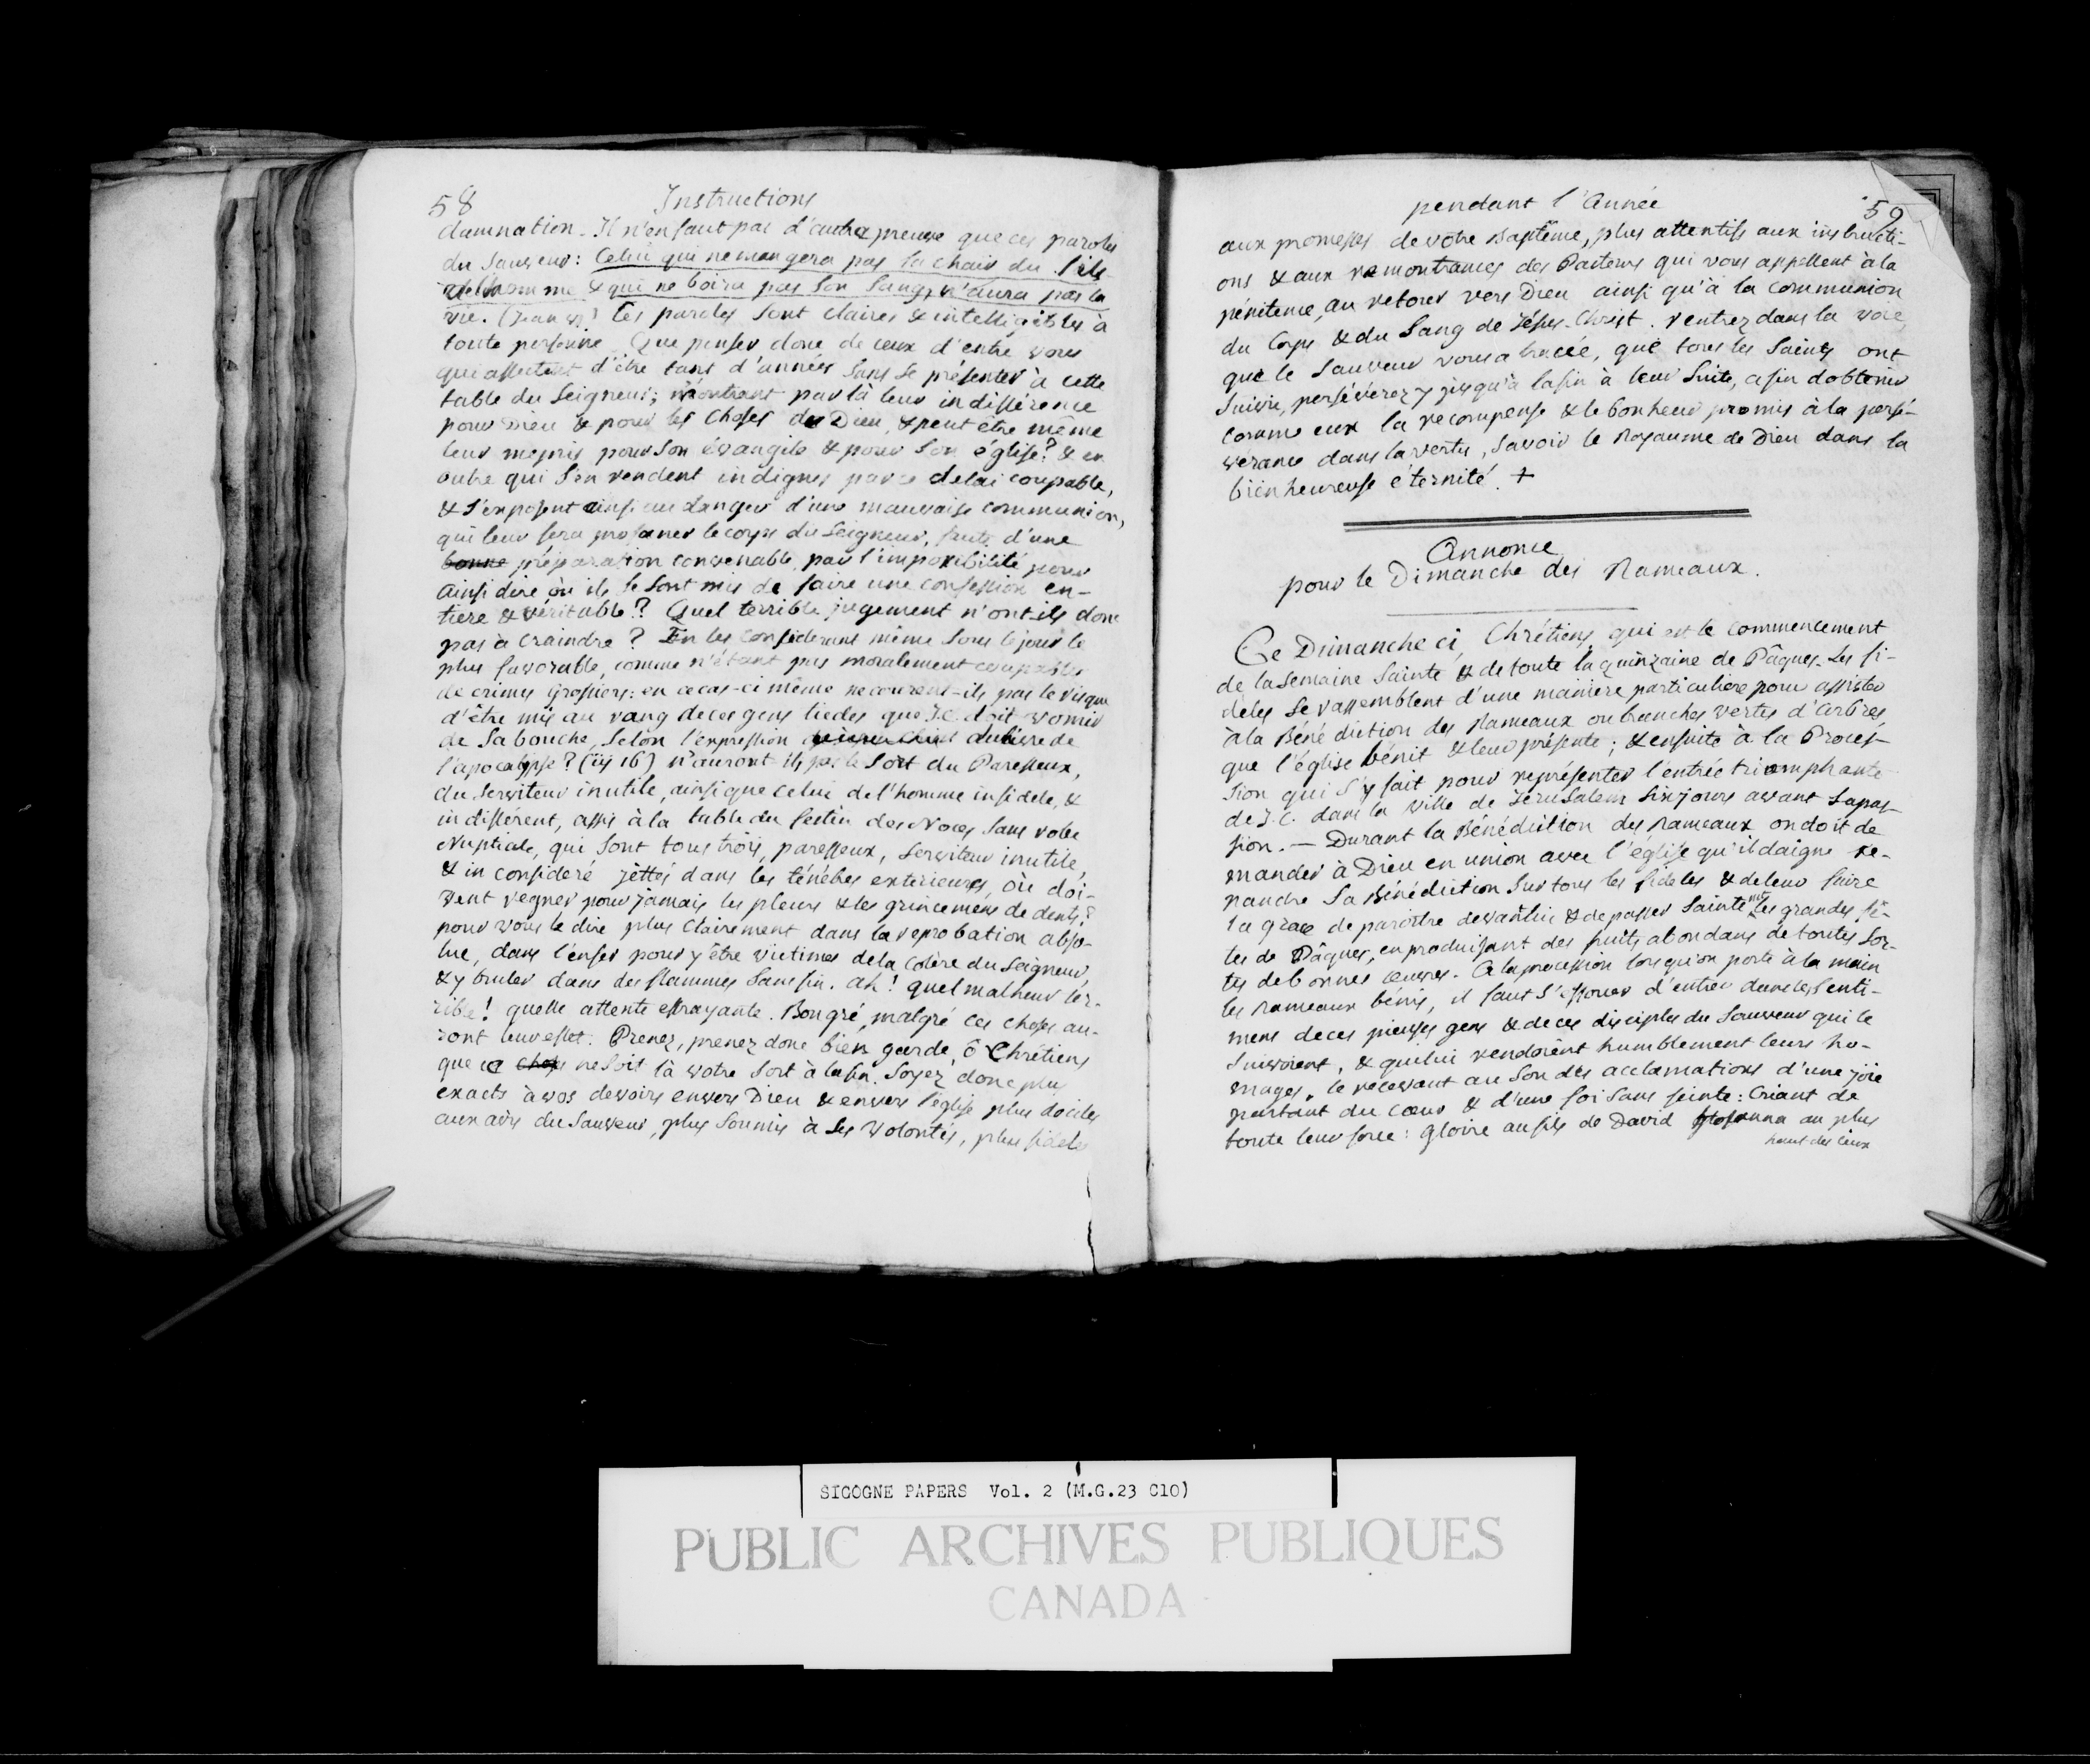 58 Instructions
damnation. Il n'en faut pas d'autre preuve que ces paroles
du Sauveur: Celui qui ne mangera pas la chair du fils
de l'homme & qui ne boira pas son Sang, n'aura pas la
vie. (Jean vj) Ces paroles sont claires & intelligibles à
toute personne. Que penser donc de ceux d'entre vous
qui affectent d'être tant d'années sans se présenter à cette
table du Seigneur; montrent par là leur indifférence
pour Dieu & pour les choses de Dieu, & peut être même
leur mépris pour son évangile & pour son église? & en
outre qui s'en rendent indignes par ce delai coupable,
& s'exposent ainsi au danger d'une mauvaise communion,
qui leur fera profaner le corps du Seigneur, faute d'une
bonne préparation convenable, par l'impossibilité pour
ainsi dire où ils se sont mis de faire une confession en-
tiere & véritable? Quel terrible jugement n'ont-ils donc
pas à craindre? En les considerant même sous le jour le
plus favorable, comme n'étant pas moralement coupables
de crimes grossiers: en ce cas-ci même ne courent-ils pas le risque
d'être mis au rang de ces gens tiedes que J.C. doit vomir
de sa bouche, selon l'expression du livre de
l'apocalypse? (iij 16) n'auront ils pas le sort du Paresseux,
du Serviteur inutile, ainsi que celui de l'homme infidele, &
indifférent, assis à la table du festin des Noces sans robe
Nuptiale, qui sont tous trois, paresseux, serviteur inutile,
& inconsideré jettés dans les ténébres exterieures, où doi-
vent regner pour jamais les pleurs & les grincemens de dents?
pour vous le dire plus clairement dans la reprobation abso-
lue, dans l'enfer pour y être victimes de la colère du Seigneur
& y bruler dans des flammes sans fin. ah! quel malheur ter-
rible! quelle attente effrayante. Bon gré, malgré ces choses au-
ront leur effet. Prenez, prenez donc bien garde, ô Chrétiens
que ce chose ne soit là votre sort à la fin. Soyez donc plus
exacts à vos devoirs envers Dieu & envers l'église plus dociles
aux avis du Sauveur, plus soumis à ses volontés, plus fideles
pendant l'Année 59
aux promesses de votre Baptême, plus attentifs aux instructi-
ons & aux remontrances des Pasteurs qui vous appellent à la
pénitence, au retour vers Dieu ainsi qu'à la communion
du Corps & du Sang de Jésus-Christ. rentrez dans la voie,
que le Sauveur vous a tracée, que tous les Saints ont
suivie, persévérez y jusqu'à la fin à leur suite, afin d'obtenir
comme eux la recompense & le bonheur promis à la persé-
vérance dans la vertu, savoir le Royaume de Dieu dans la
bienheureuse éternité. +
Annonce
pour le Dimanche des Rameaux.
Ce Dimanche ci, Chrétiens, qui est le commencement
de la Semaine Sainte & de toute la quinzaine de Pâques. Les fi-
deles se rassemblent d'une maniere particuliere pour assister
à la Bénédiction des Rameaux ou branches vertes d'arbres,
que l'église bénit & leur présente; & ensuite à la Proces-
sion qui s'y fait pour représenter l'entrée triomphante
de J.C. dans la ville de Jérusalem six jours avant sa pas-
sion. — Durant la Bénédiction des Rameaux on doit de
mander à Dieu en union avec l'église qu'il daigne re-
pandre sa Bénédiction sur tous les fideles & de leur faire
la grace de paroître devant lui & de passer Saintemt les grandes fê-
tes de Pâques, en produisant des fruits abondans de toutes sor-
tes de bonnes œuvres. A la procession lorsqu'on porte à la main
les Rameaux bénis, il faut s'efforcer d'entrer dans les senti-
mens de ces pieuses gens & de ces disciples du Sauveur qui le
suivoient, & qui lui rendoient humblement leurs ho-
mages, le recevant au son des acclamations d'une joie
partant du cœur & d'une foi sans feinte: Criant de
toute leur force: gloire au fils de David Hosanna au plus
haut des cieux
SICOGNE PAPERS Vol. 2 (M.G.23 C10)
PUBLIC ARCHIVES PUBLIQUES
CANADA